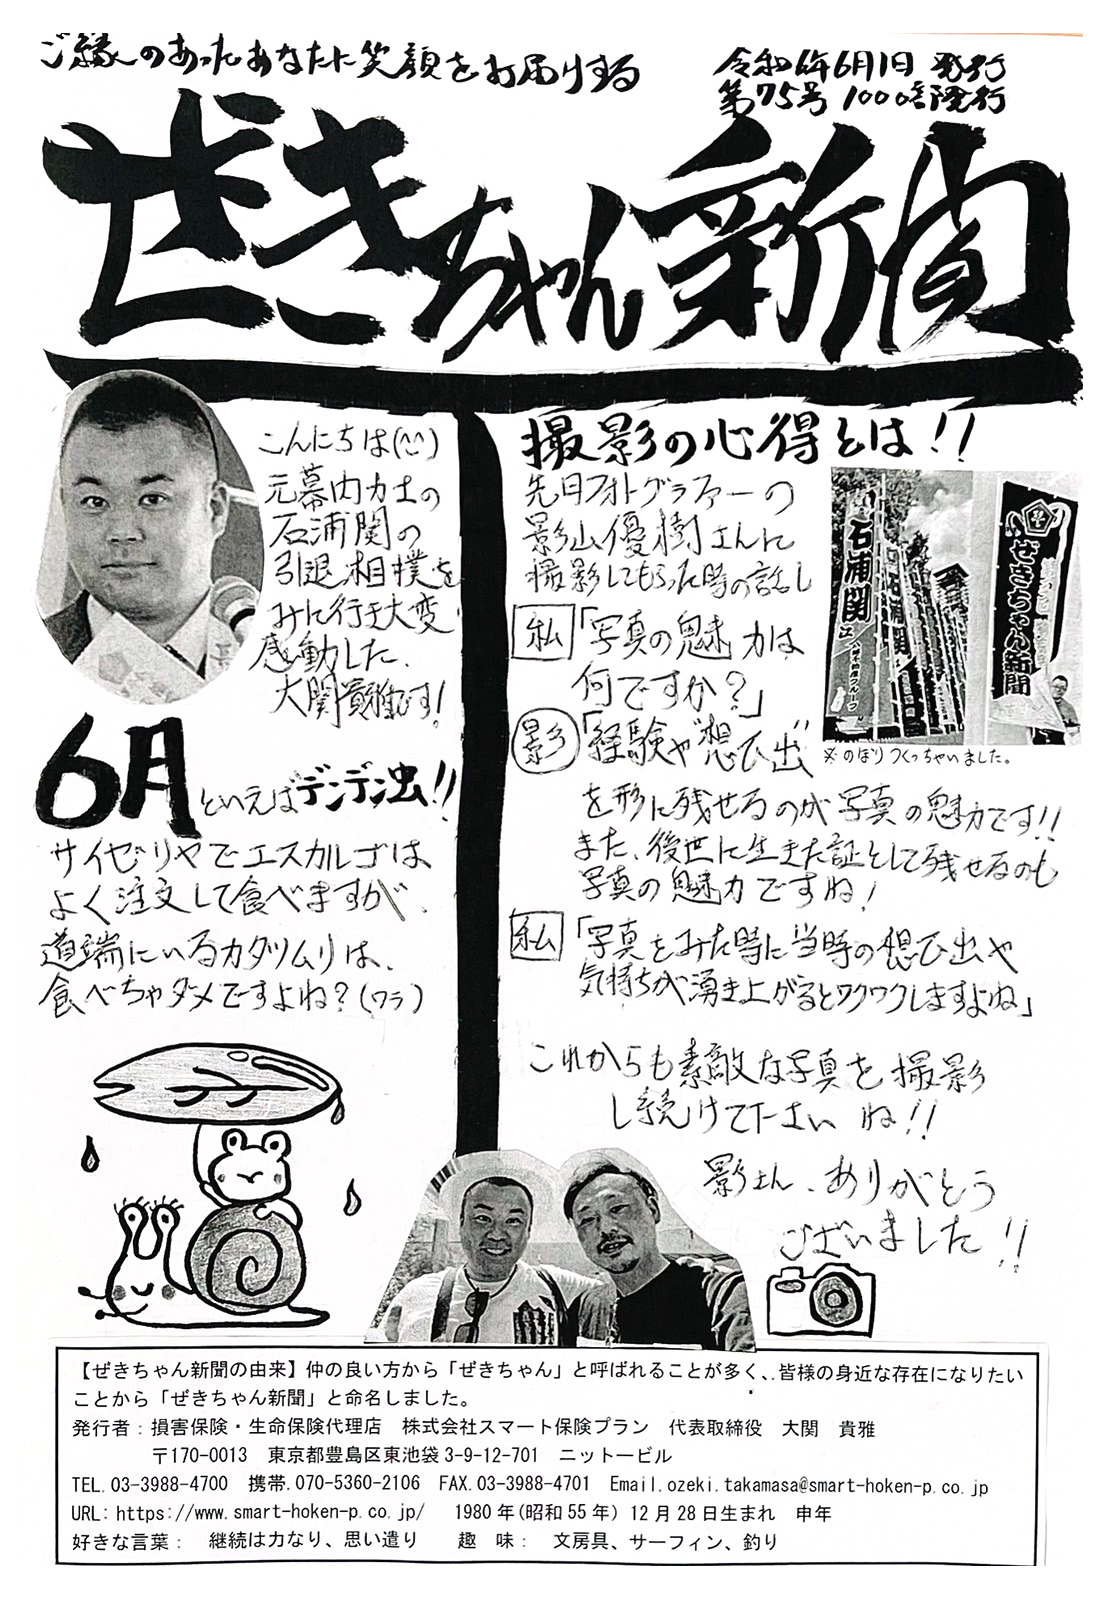 ご縁のあったあなたに笑顔をお届けする
令和6年6月1日 発行
第75号 1000部発行
ぜきちゃん新聞
こんにちは(^^)
元幕内力士の
石浦関の
引退相撲を
みに行き大変
感動した、
大関貴雅です!
6月といえばデンデン虫!!
サイゼリヤでエスカルゴは
よく注文して食べますが、
道端にいるカタツムリは、
食べちゃダメですよね?(ワラ)
撮影の心得とは!!
先日フォトグラファーの
影山優樹さんに
撮影してもらった時の話し
私「写真の魅力は
何ですか?」
影「経験や"想ひ出"
を形に残せるのが写真の魅力です!!
また、後世に生きた証として残せるのも
写真の魅力ですね!
私「写真をみた時に当時の想ひ出や
気持ちが湧き上がるとワクワクしますよね」
これからも素敵な写真を撮影
し続けて下さいね!!
影さん、ありがとう
ございました!!
石浦関
ぜきちゃん新聞
※のぼりつくっちゃいました。
【ぜきちゃん新聞の由来】仲の良い方から「ぜきちゃん」と呼ばれることが多く、皆様の身近な存在になりたい
ことから「ぜきちゃん新聞」と命名しました。
発行者:損害保険・生命保険代理店 株式会社スマート保険プラン 代表取締役 大関 貴雅
〒170-0013 東京都豊島区東池袋3-9-12-701 ニットービル
TEL.03-3988-4700 携帯.070-5360-2106 FAX.03-3988-4701 Email.ozeki.takamasa@smart-hoken-p.co.jp
URL:https://www.smart-hoken-p.co.jp/ 1980年(昭和55年)12月28日生まれ 申年
好きな言葉: 継続は力なり、思い遣り 趣 味: 文房具、サーフィン、釣り